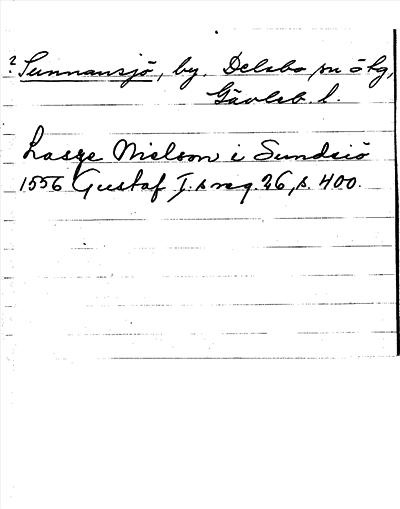 ? Sunnansjö, by. Delsbo sn ö tg,
Gävleb. l.
Lasse Nielson i Sundsiö
1556 Gustaf I:s reg. 26, s. 400.